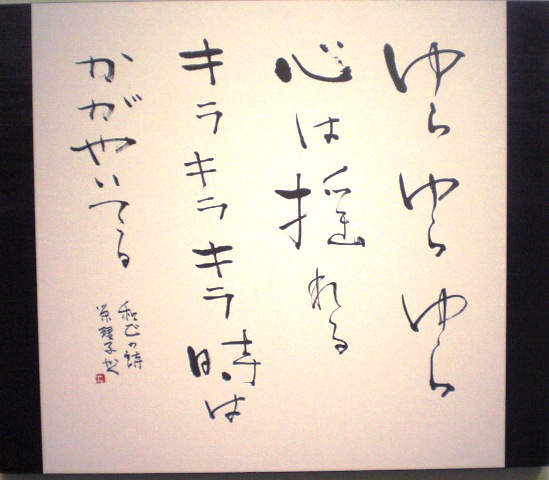 ゆらゆらゆら
心は揺れる
キラキラキラ時は
かがやいてる